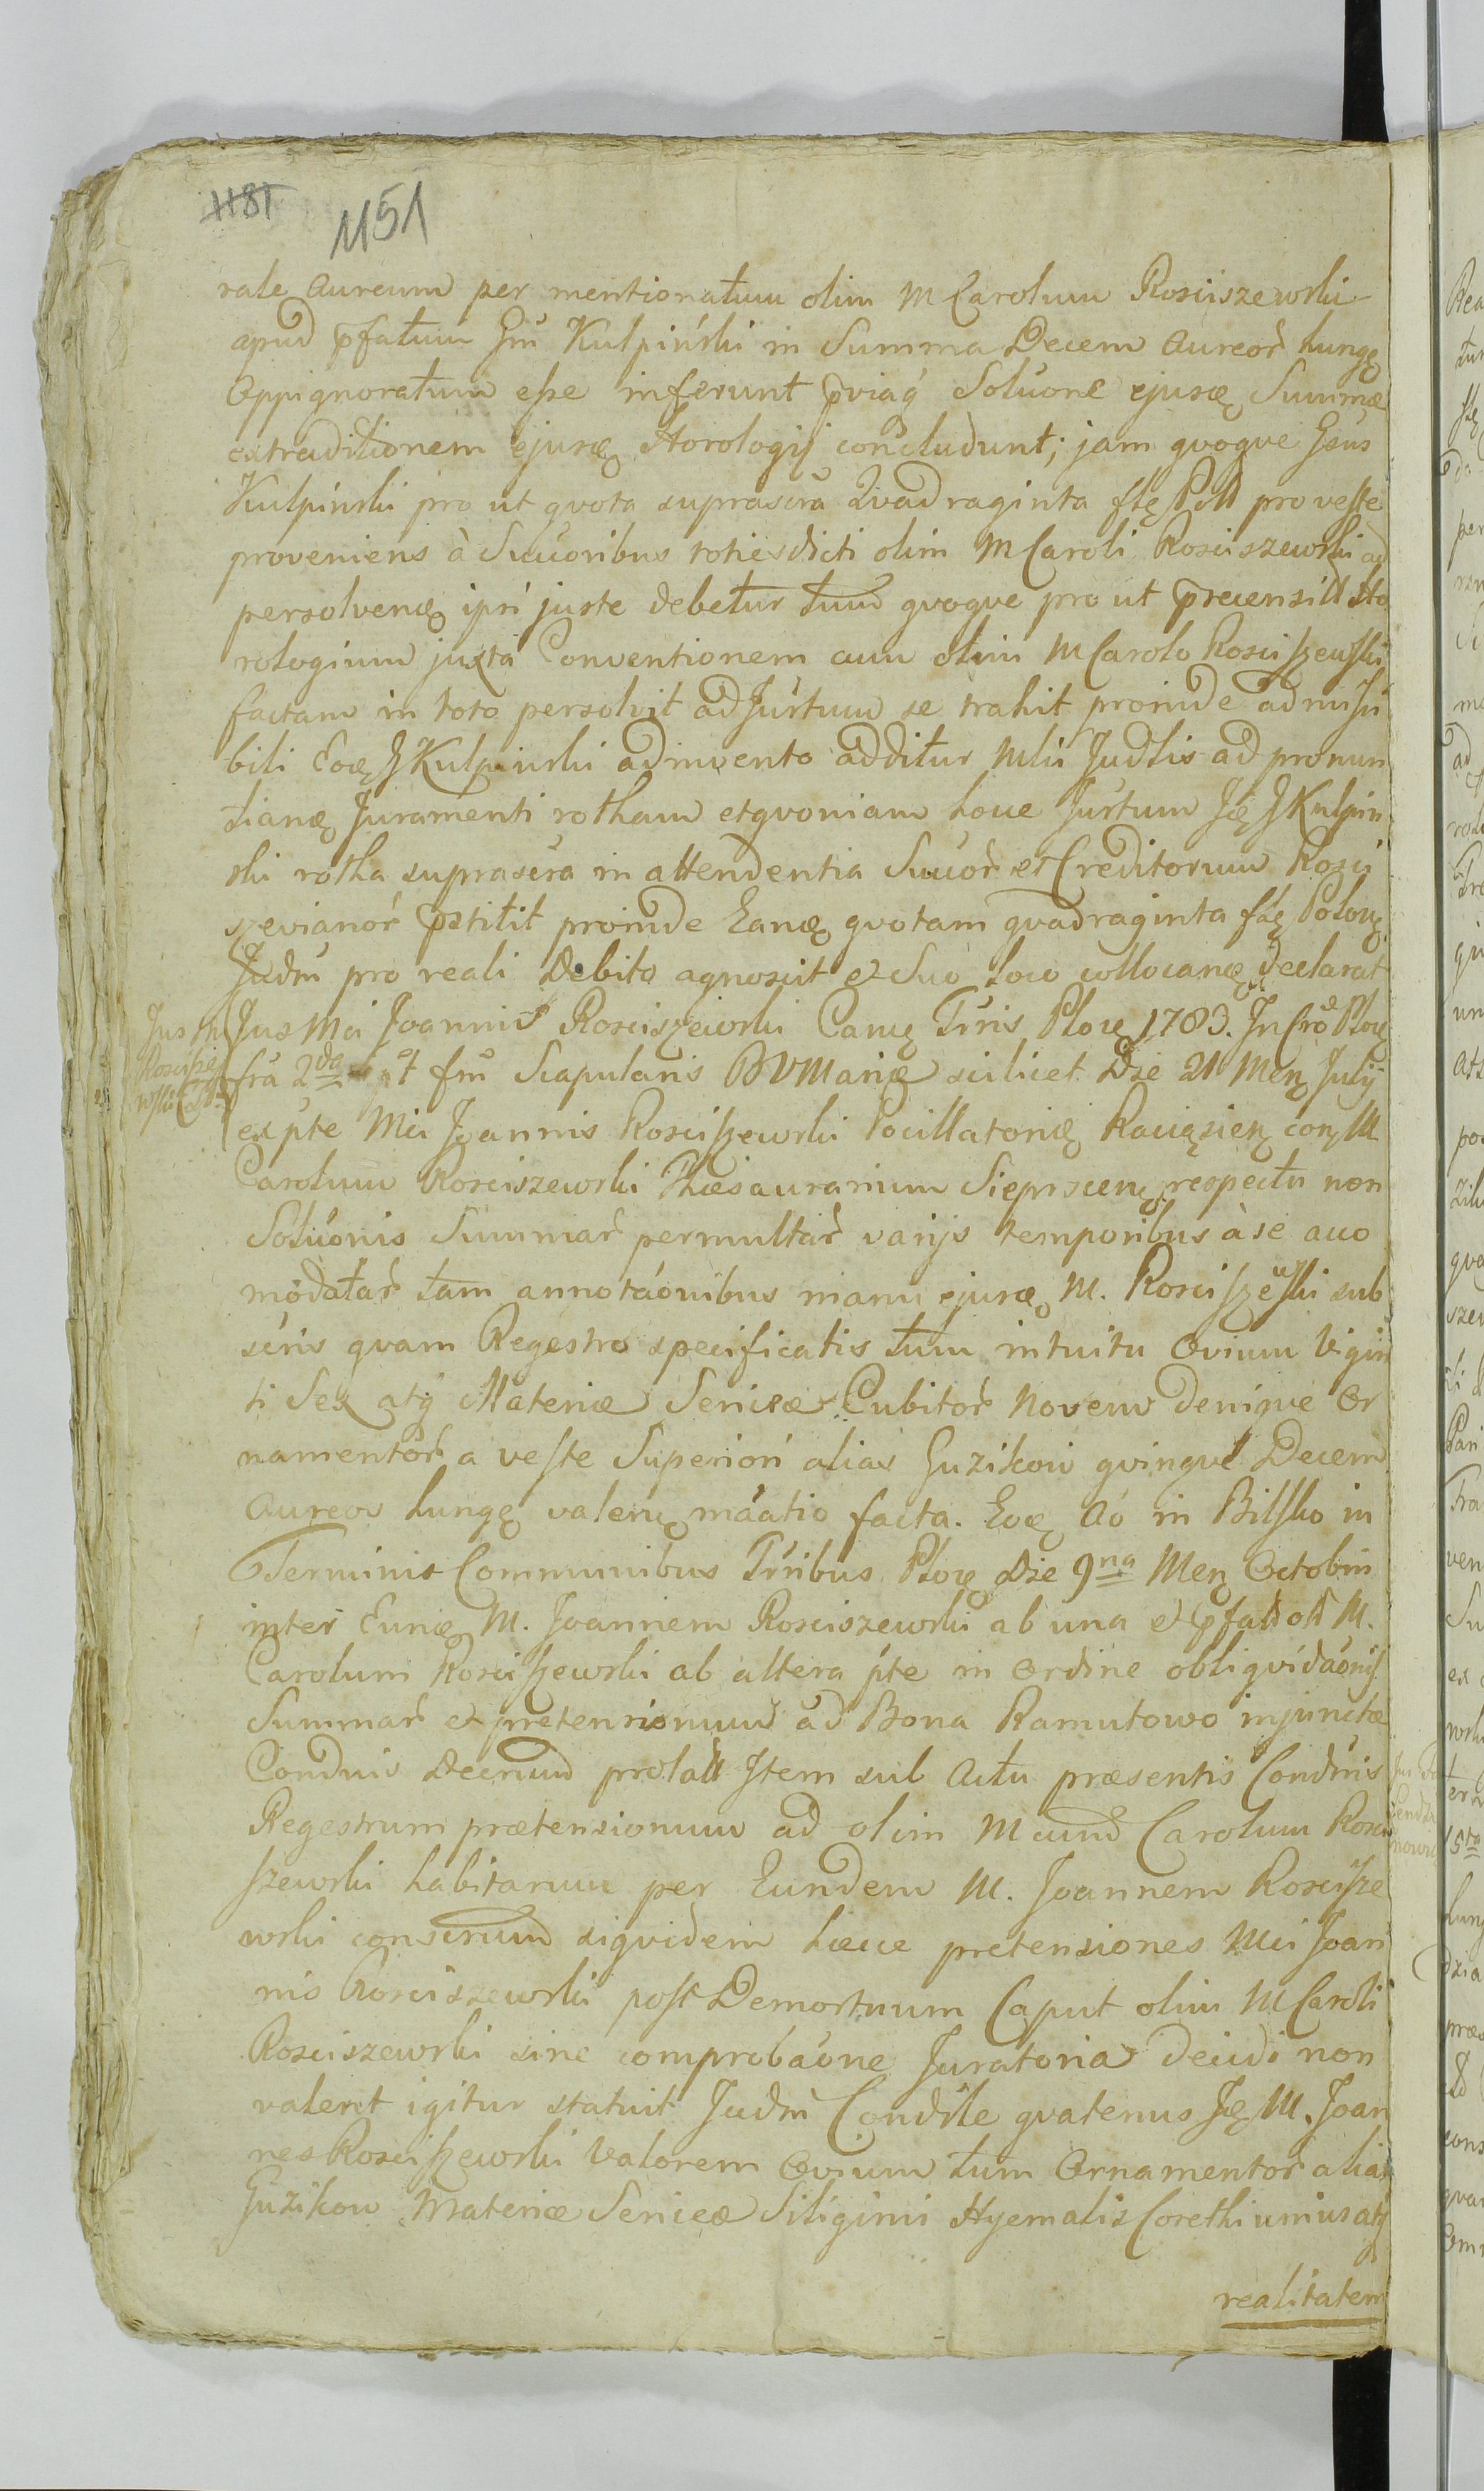 1181
1151
rale Aureum per mentionatum olim M Carolum Rosciszewski
apud p̃fatum Gm̃ Kulpiński in Summa Decem Aureoř hungę
Oppignoratum eſse inferunt p̃viaq́ Soluc̃one ejusdę Summæ
extraditionem ejusdę Horologij concludunt; jam qvoqve Gsus
Kulpiński pro ut qvota suprascra Qvadraginta flę Poll pro veſte
proveniens à Succoribus totiesdicti olim M Caroli Rosciszewski ad
persolvendę ipsi juste debetur tum qvoqve pro ut p̃recensitt Ho
rologium juxta Conventionem cum olim M Carolo Rosciſzewſki
factam in toto persolvit ad Jurtum se trahit proinde admiſsi
bili Eodę G Kulpinski adinvento additur Mlii Judlis ad pronun
tiandę Juramenti rotham et qvoniam hocce Jurtum Idę G Kulpin
ski rotha suprascra in attendentia Succoř et Creditorum Rosci
szevianoř p̃stitit proinde Eandę qvotam qvadraginta flę Polonę
Judm̃ pro reali Debito agnoscit et Suo loco collocandę declarat
Jus Mi
Rosciſze
wſki
Jus Mci Joannis Rosciszewski Camę Trris Plocę 1783. In Crõ Plocę
fra 2da p̃t fm̃ Scapularis BVMariæ scilicet Die 21 Menę Julij
ex pte Mci Joannis Rosciſzewski Pocillatoris Raciąsienę conę M
Carolum Rosciszewski Thesaurarium Sieprscenę respectu non
Soluc̃onis Summař permultař varijs temporibus à se acco
modatař tam annotác̃onibus manu ejusdę M. Rosciſzewſki sub
scris qvam Regestro specificatis tum intuitu Ovium Vigin
ti Sex atq́ Materiæ Sericeæ Cubitoř Novem deniqve Or
namentoř a veſte Superiori alias Guzikow qvinqve Decem
Aureos hungę valenę máatio facta. Eodę Ao in Bilſko in
Terminis Communibus Trribus Plocę Die 9na Menę Octobris
inter Eundę M. Joannem Rosciszewski ab una et p̃fatt olt M.
Carolum Rosciſzewski ab altera pte in Ordine obliqvidác̃onis
Summař et pretensionum ad Bona Ramutowo injunctæ
Condnis Decrum prolatt Item sub Actu præsentis Condnis
Regestrum prætensionum ad olim M cund Carolum Rosci
ſzewski habitarum per Eundem M. Joannem Rosciſze
wski conscrum siqvidem hæcce pretensiones Mci Joan
nis Rosciszewski poſt Demortuum Caput olim M Caroli
Rosciszewski sine comprobác̃one Juratoria decidi non
valeret igitur statuit Judm̃ Condle qvatenus Idę M. Joan
nes Rosciſzewski Valorem Ovium tum Ornamentoř alias
Guzikow Materiæ Sericeæ Siliginis Hyemalis Corethi unius atq́
realitatem